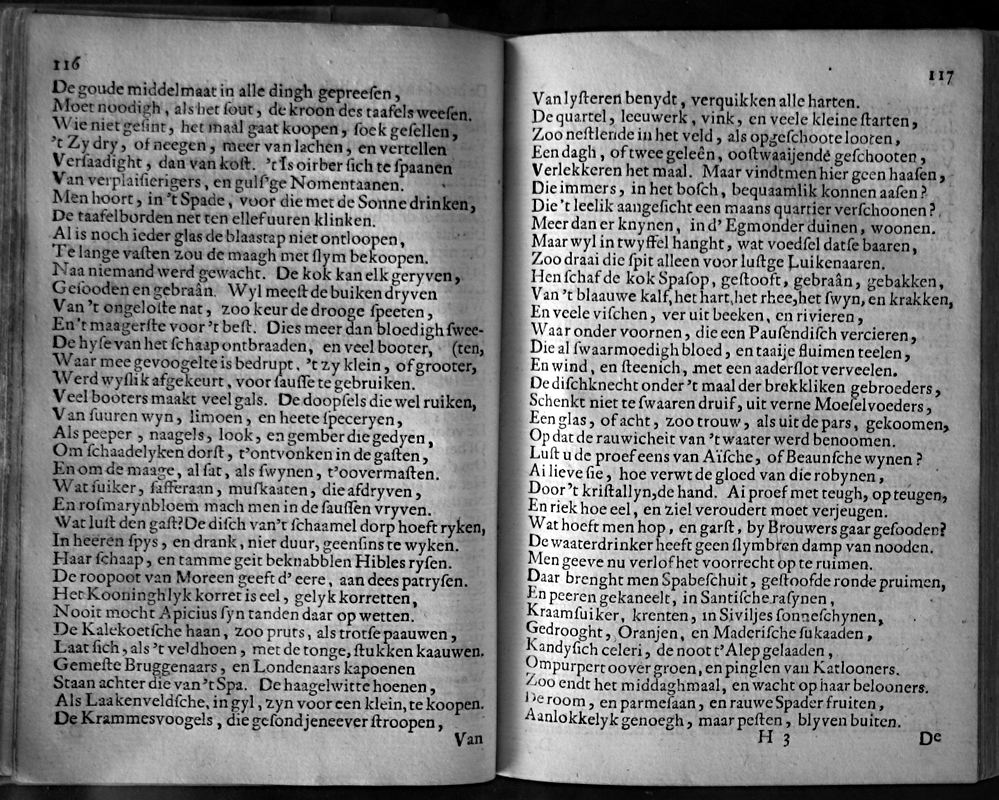 116
De goude middelmaat in alle dingh gepreeſen,
Moet noodigh, als het ſout, de kroon des taafels weeſen.
Wie niet geſint, het maal gaat koopen, ſoek geſellen,
't Zy dry, of neegen, meer van lachen, en vertellen
Verſaadight, dan van koſt. 't Is oirber ſich te ſpaanen
Van verplaiſierigers, en gulſ'ge Nomentaanen.
Men hoort, in 't Spade, voor die met de Sonne drinken,
De taafelborden net ten ellef uuren klinken.
Al is noch ieder glas de blaastap niet ontloopen,
Te lange vaſten zou de maagh met ſlym bekoopen.
Naa niemand werd gewacht. De kok kan elk geryven,
Geſooden en gebraân. Wyl meeſt de buiken dryven
Van 't ongeloſte nat, zoo keur de drooge ſpeeten,
En 't maagerſte voor 't beſt. Dies meer dan bloedigh ſwee-
De hyſe van het ſchaap ontbraaden, en veel booter, (ten,
Waar mee gevoogelte is bedrupt, 't zy klein, of grooter,
Werd wyſlik afgekeurt, voor ſauſſe te gebruiken.
Veel booters maakt veel gals. De doopſels die wel ruiken,
Van ſuuren wyn, limoen, en heete ſpeceryen,
Als peeper, naagels, look, en gember die gedyen,
Om ſchaadelyken dorſt, t'ontvonken in de gaſten,
En om de maage, al ſat, als ſwynen, t'oovermaſten.
Wat ſuiker, ſafferaan, muſkaaten, die afdryven,
En roſmarynbloem mach men in de ſauſſen vryven.
Wat luſt den gaſt? De diſch van't ſchaamel dorp hoeft ryken,
In heeren ſpys, en drank, niet duur, geenſins te wyken.
Haar ſchaap, en tamme geit beknabblen Hibles ryſen.
De roopoot van Moreen geeft d' eere, aan dees patryſen.
Het Kooninghlyk korret is eel, gelyk korretten,
Nooit mocht Apicius ſyn tanden daar op wetten.
De Kalekoetſche haan, zoo pruts, als trotſe paauwen,
Laat ſich, als 't veldhoen, met de tonge, ſtukken kaauwen.
Gemeſte Bruggenaars, en Londenaars kapoenen
Staan achter die van 't Spa. De haagelwitte hoenen,
Als Laakenveldſche, in gyl, zyn voor een klein, te koopen.
De Krammesvoogels, die geſond jeneever ſtroopen,
Van
117
Van lyſteren benydt, verquikken alle harten.
De quartel, leeuwerk, vink, en veele kleine ſtarten,
Zoo neſtlende in het veld, als opgeſchoote looten,
Een dagh, of twee geleên, ooſtwaaijende geſchooten,
Verlekkeren het maal. Maar vindtmen hier geen haaſen,
Die immers, in het boſch, bequaamlik konnen aaſen?
Die 't leelik aangeſicht een maans quartier verſchoonen?
Meer dan er knynen, in d' Egmonder duinen, woonen.
Maar wyl in twyffel hanght, wat voedſel datſe baaren,
Zoo draai die ſpit alleen voor luſtge Luikenaaren.
Hen ſchaf de kok Spaſop, geſtooft, gebraân, gebakken,
Van 't blaauwe kalf, het hart, het rhee, het ſwyn, en krakken,
En veele viſchen, ver uit beeken, en rivieren,
Waar onder voornen, die een Pauſendiſch vercieren,
Die al ſwaarmoedigh bloed, en taaije fluimen teelen,
En wind, en ſteenich, met een aaderſlot verveelen.
De diſchknecht onder 't maal der brekkliken gebroeders,
Schenkt niet te ſwaaren druif, uit verne Moeſelvoeders,
Een glas, of acht, zoo trouw, als uit de pars, gekoomen,
Op dat de rauwicheit van 't waater werd benoomen.
Luſt u de proef eens van Aïſche, of Beaunſche wynen?
Ai lieve ſie, hoe verwt de gloed van die robynen,
Door 't kriſtallyn, de hand. Ai proef met teugh, op teugen,
En riek hoe eel, en ziel veroudert moet verjeugen.
Wat hoeft men hop, en garſt, by Brouwers gaar geſooden?
De waaterdrinker heeft geen ſlymbren damp van nooden.
Men geeve nu verlof het voorrecht op te ruimen.
Daar brenght men Spabeſchuit, geſtoofde ronde pruimen,
En peeren gekaneelt, in Santiſche raſynen,
Kraamſuiker, krenten, in Siviljes ſonneſchynen,
Gedrooght, Oranjen, en Maderiſche ſukaaden,
Kandyſich celeri, de noot t'Alep gelaaden,
Ompurpert oover groen, en pinglen van Katlooners.
Zoo endt het middaghmaal, en wacht op haar belooners.
De room, en parmeſaan, en rauwe Spader fruiten,
Aanlokkelyk genoegh, maar peſten, blyven buiten.
H 3 De